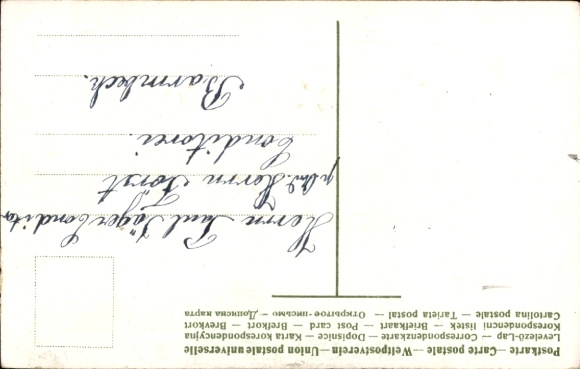 Postkarte — Carte postale — Weltpostverein — Union postale universelle
Levelező-Lap — Correspondenzkarte — Dopisnice — Karta korespondencyjna
Korespondencni listek — Briefkaart — Post card — Bretkort — Brevkort
Cartolina postale — Tarjeta postal — Открытое-письмо — Дописна карта
Herrn Paul Jäger Conditor
Herrn Forst
Conditorei.
Barmbeck.